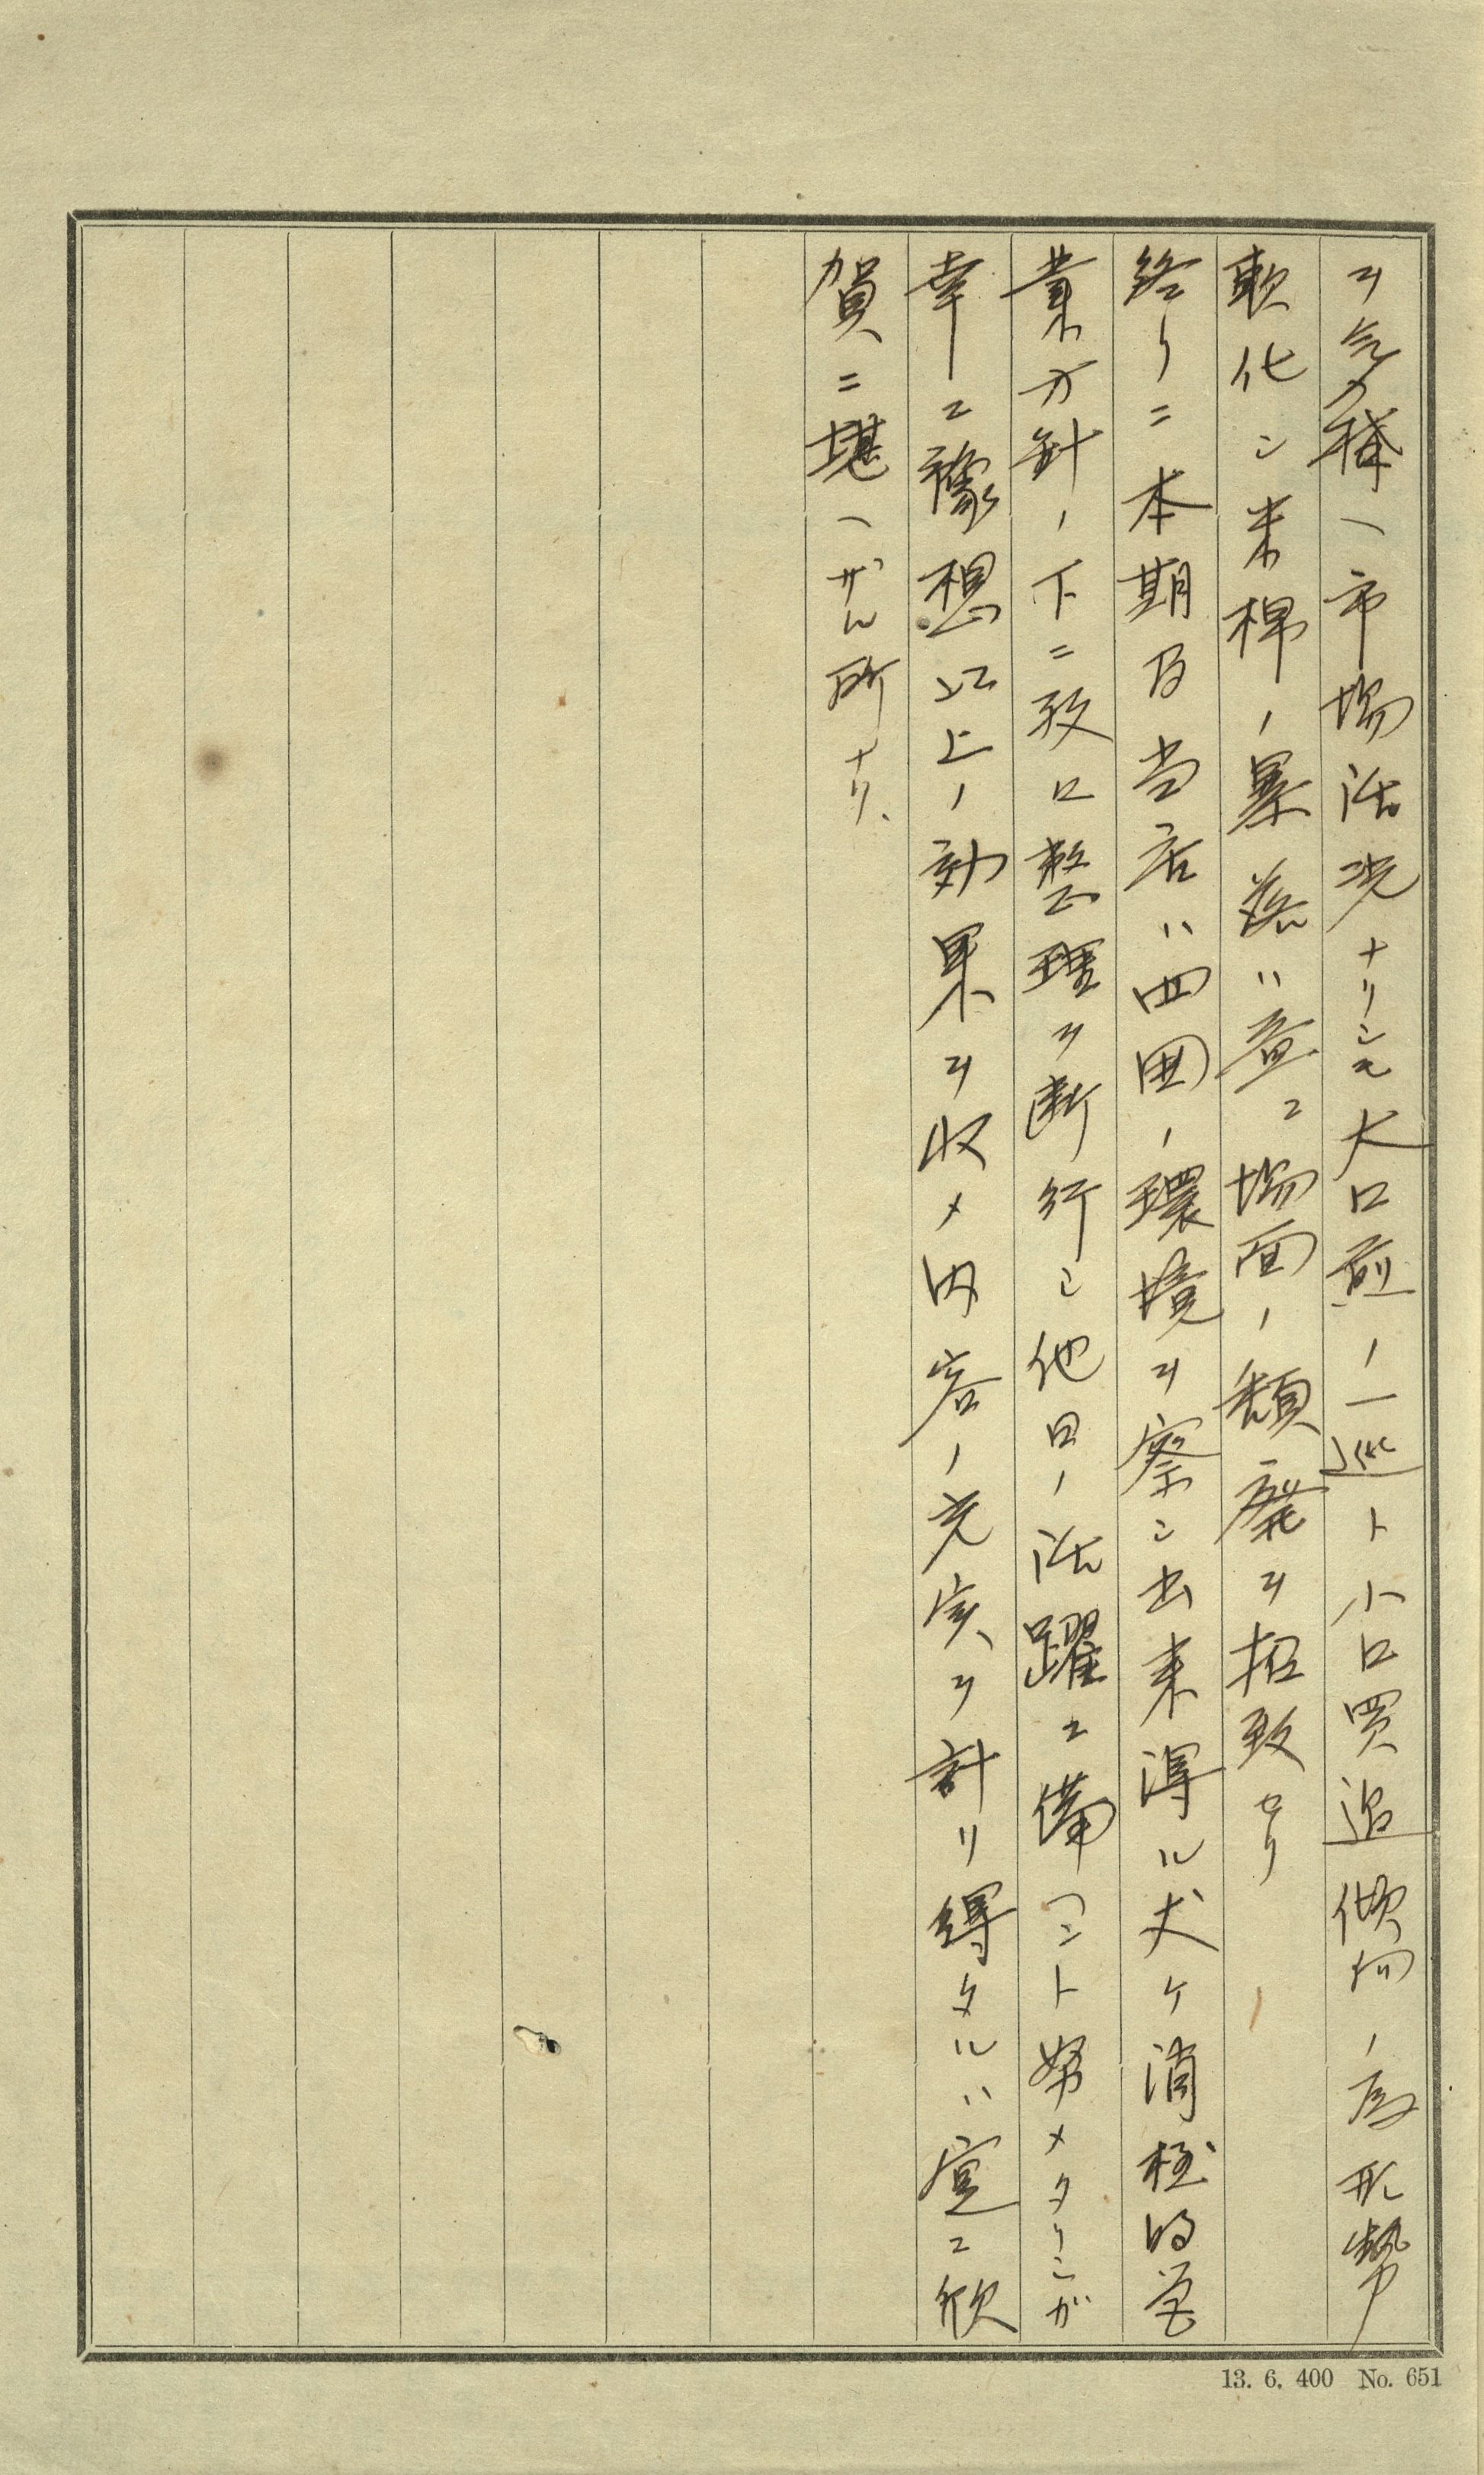 ヲ気構ヘ市場活況ナリシモ大口煎ノ一巡ト小口買追傾向ノ為形勢
軟化シ米棉ノ暴落ハ益々場面ノ頽廃ヲ招致セリ
終リニ本期及当店ハ四囲ノ環境ヲ察シ出来得ル丈ケ消極的営
業方針ノ下ニ致口整理ヲ断行シ他日ノ活躍ニ備ヘント努メタリシガ
幸ニ豫想以上ノ効果ヲ収メ内容ノ充実ヲ計リ得タルハ寔ニ欣
賀ニ堪ヘザル所ナリ、
13. 6. 400 No. 651